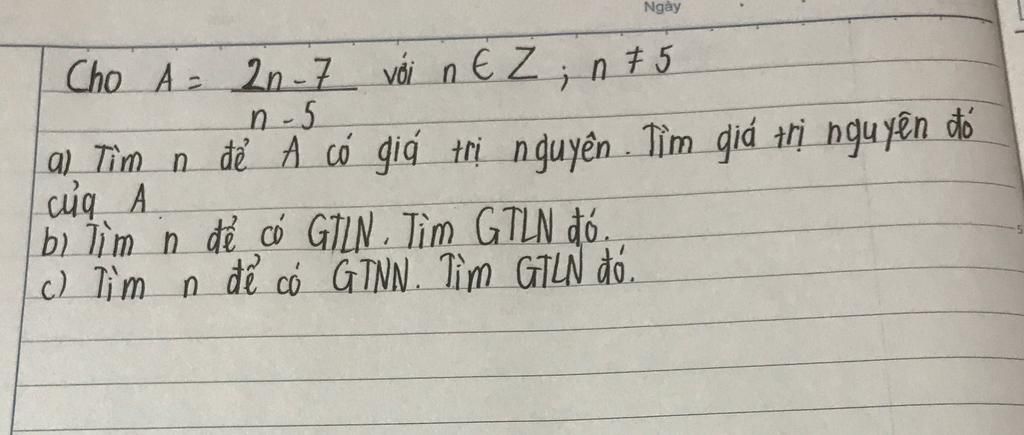 Ngày
Cho A = \frac{2n-7}{n-5} với n ∈ Z ; n ≠ 5
a) Tìm n để A có giá trị nguyên. Tìm giá trị nguyên đó
của A.
b) Tìm n để có GTLN. Tìm GTLN đó.
c) Tìm n để có GTNN. Tìm GTLN đó.